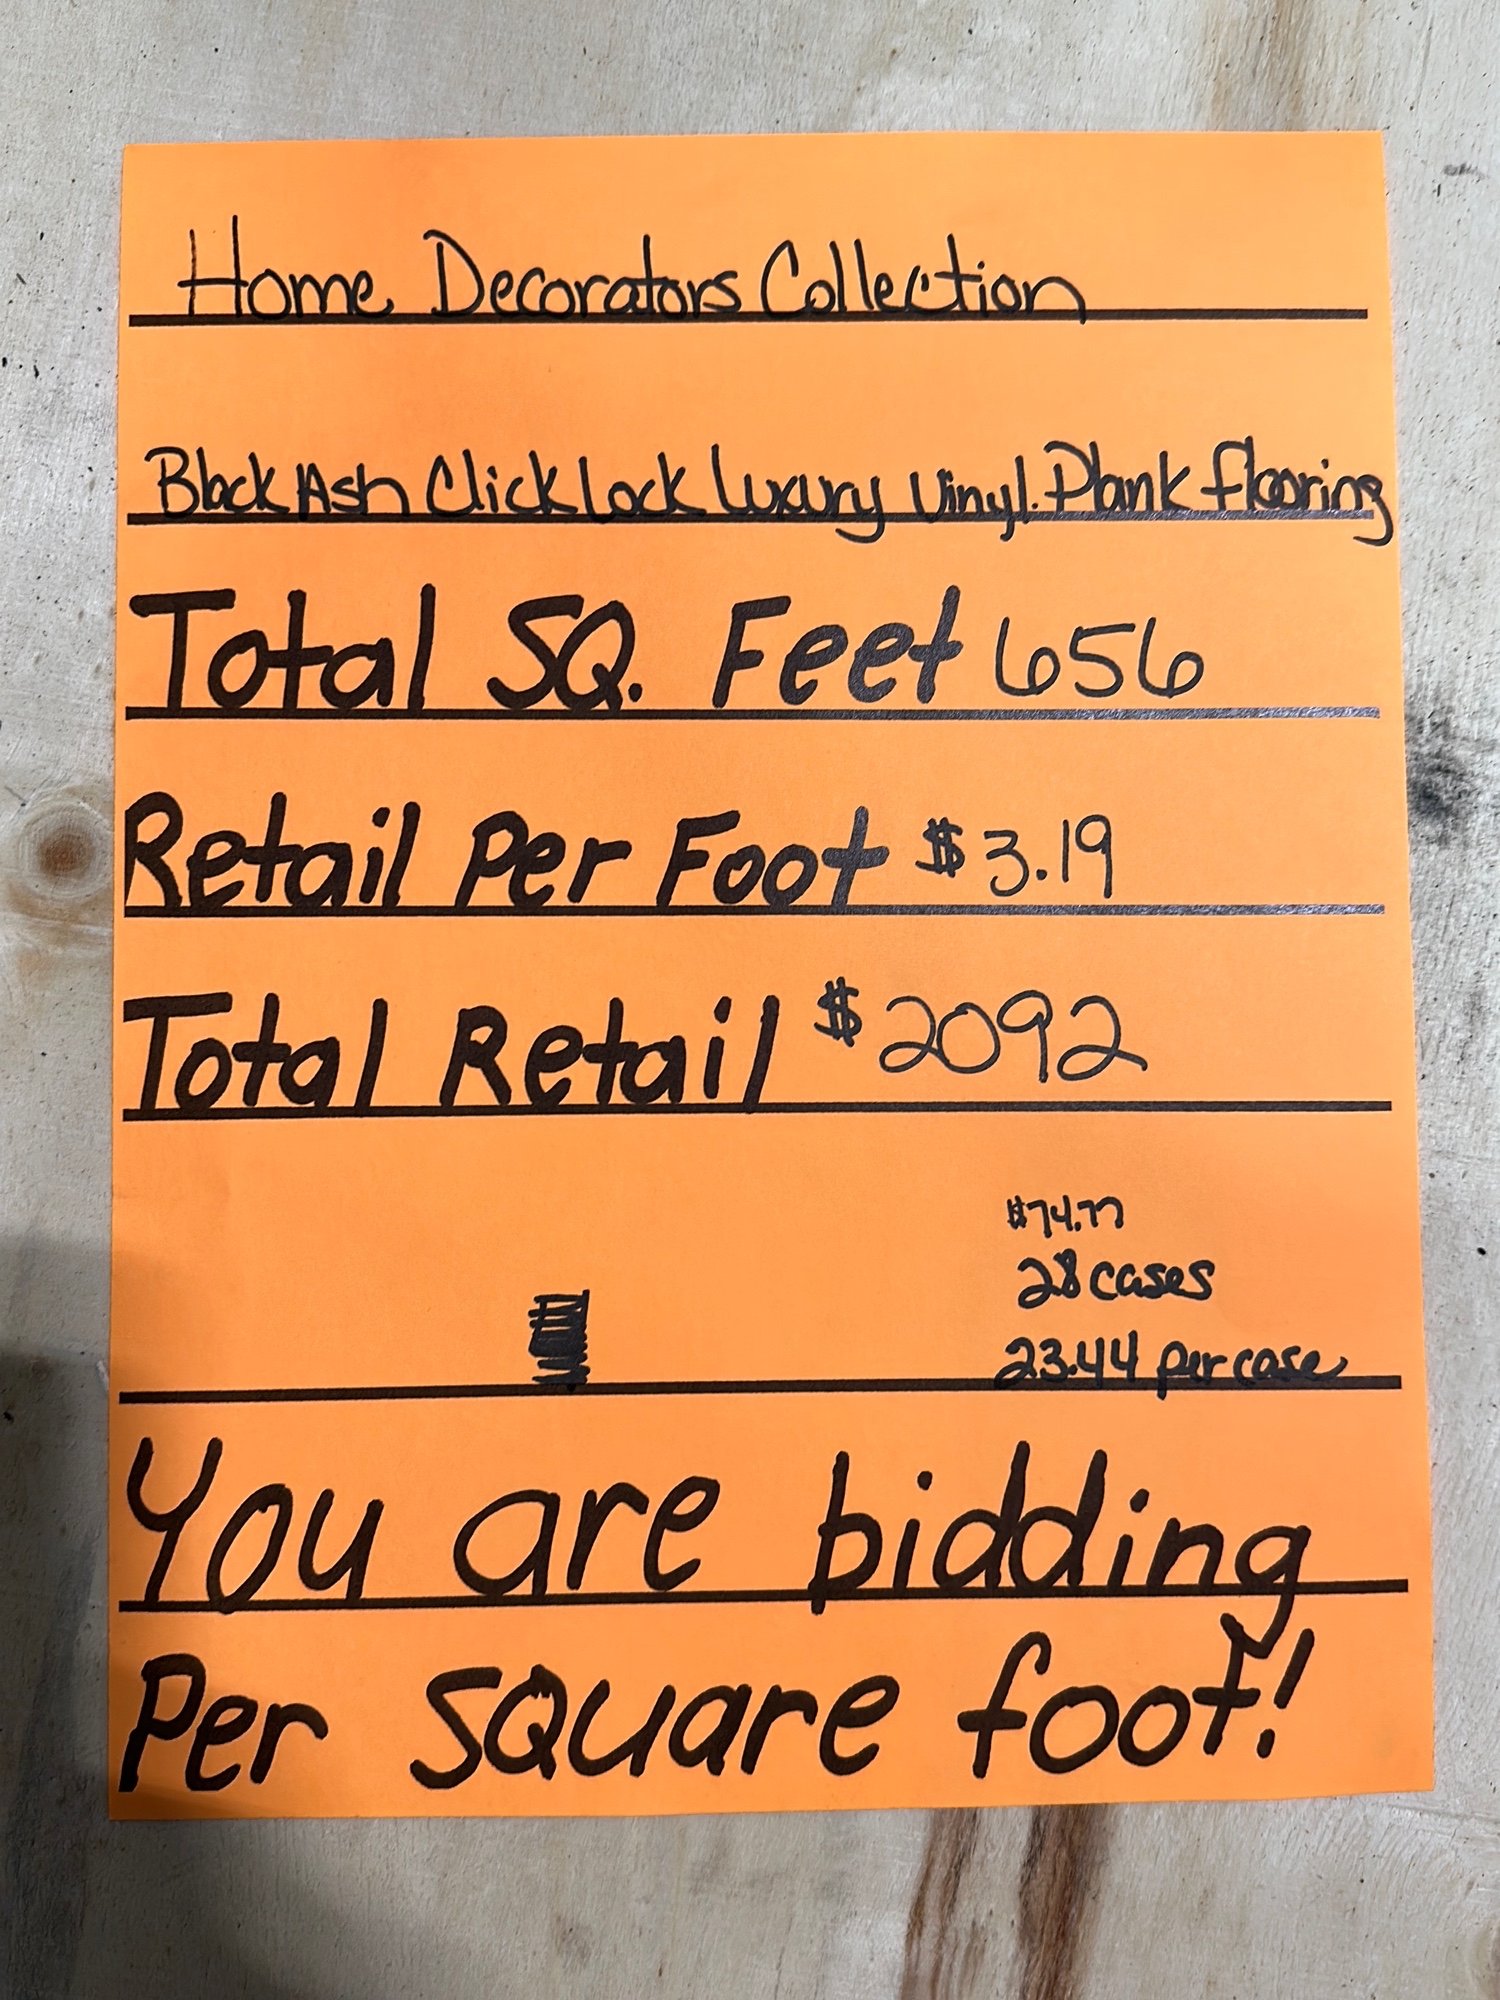 Home Decorators Collection
Black Ash Click Lock Luxury Vinyl Plank Flooring
Total SQ. Feet 656
Retail Per Foot $3.19
Total Retail $2092
$74.77
28 cases
23.44 per case
You are bidding
Per square foot!